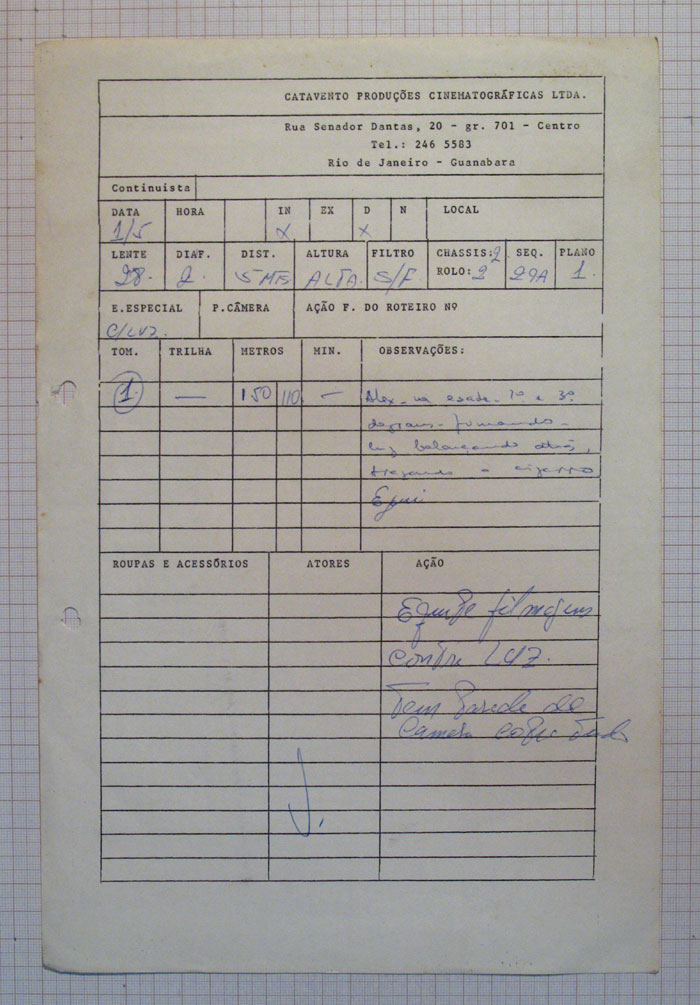 CATAVENTO PRODUÇÕES CINEMATOGRÁFICAS LTDA.
Rua Senador Dantas, 20 - gr. 701 - Centro
Tel.: 246 5583
Rio de Janeiro - Guanabara
Continuista
DATA HORA IN EX D N LOCAL
1/5 X X
LENTE DIAF. DIST. ALTURA FILTRO CHASSIS:2 SEQ. PLANO
28. 2. 5 MTS ALTA. S/F. ROLO:2 29A 1.
E.ESPECIAL P.CÂMERA AÇÃO F. DO ROTEIRO Nº
C/LUZ.
TOM. TRILHA METROS MIN. OBSERVAÇÕES:
1. — 150 110 — Alex - na escada - 1º e 3º
degraus - fumando -
luz balançando atrás,
tragando o cigarro
ROUPAS E ACESSÓRIOS ATORES AÇÃO
Equipe filmagens
contra LUZ.
Tem parede de
Camera